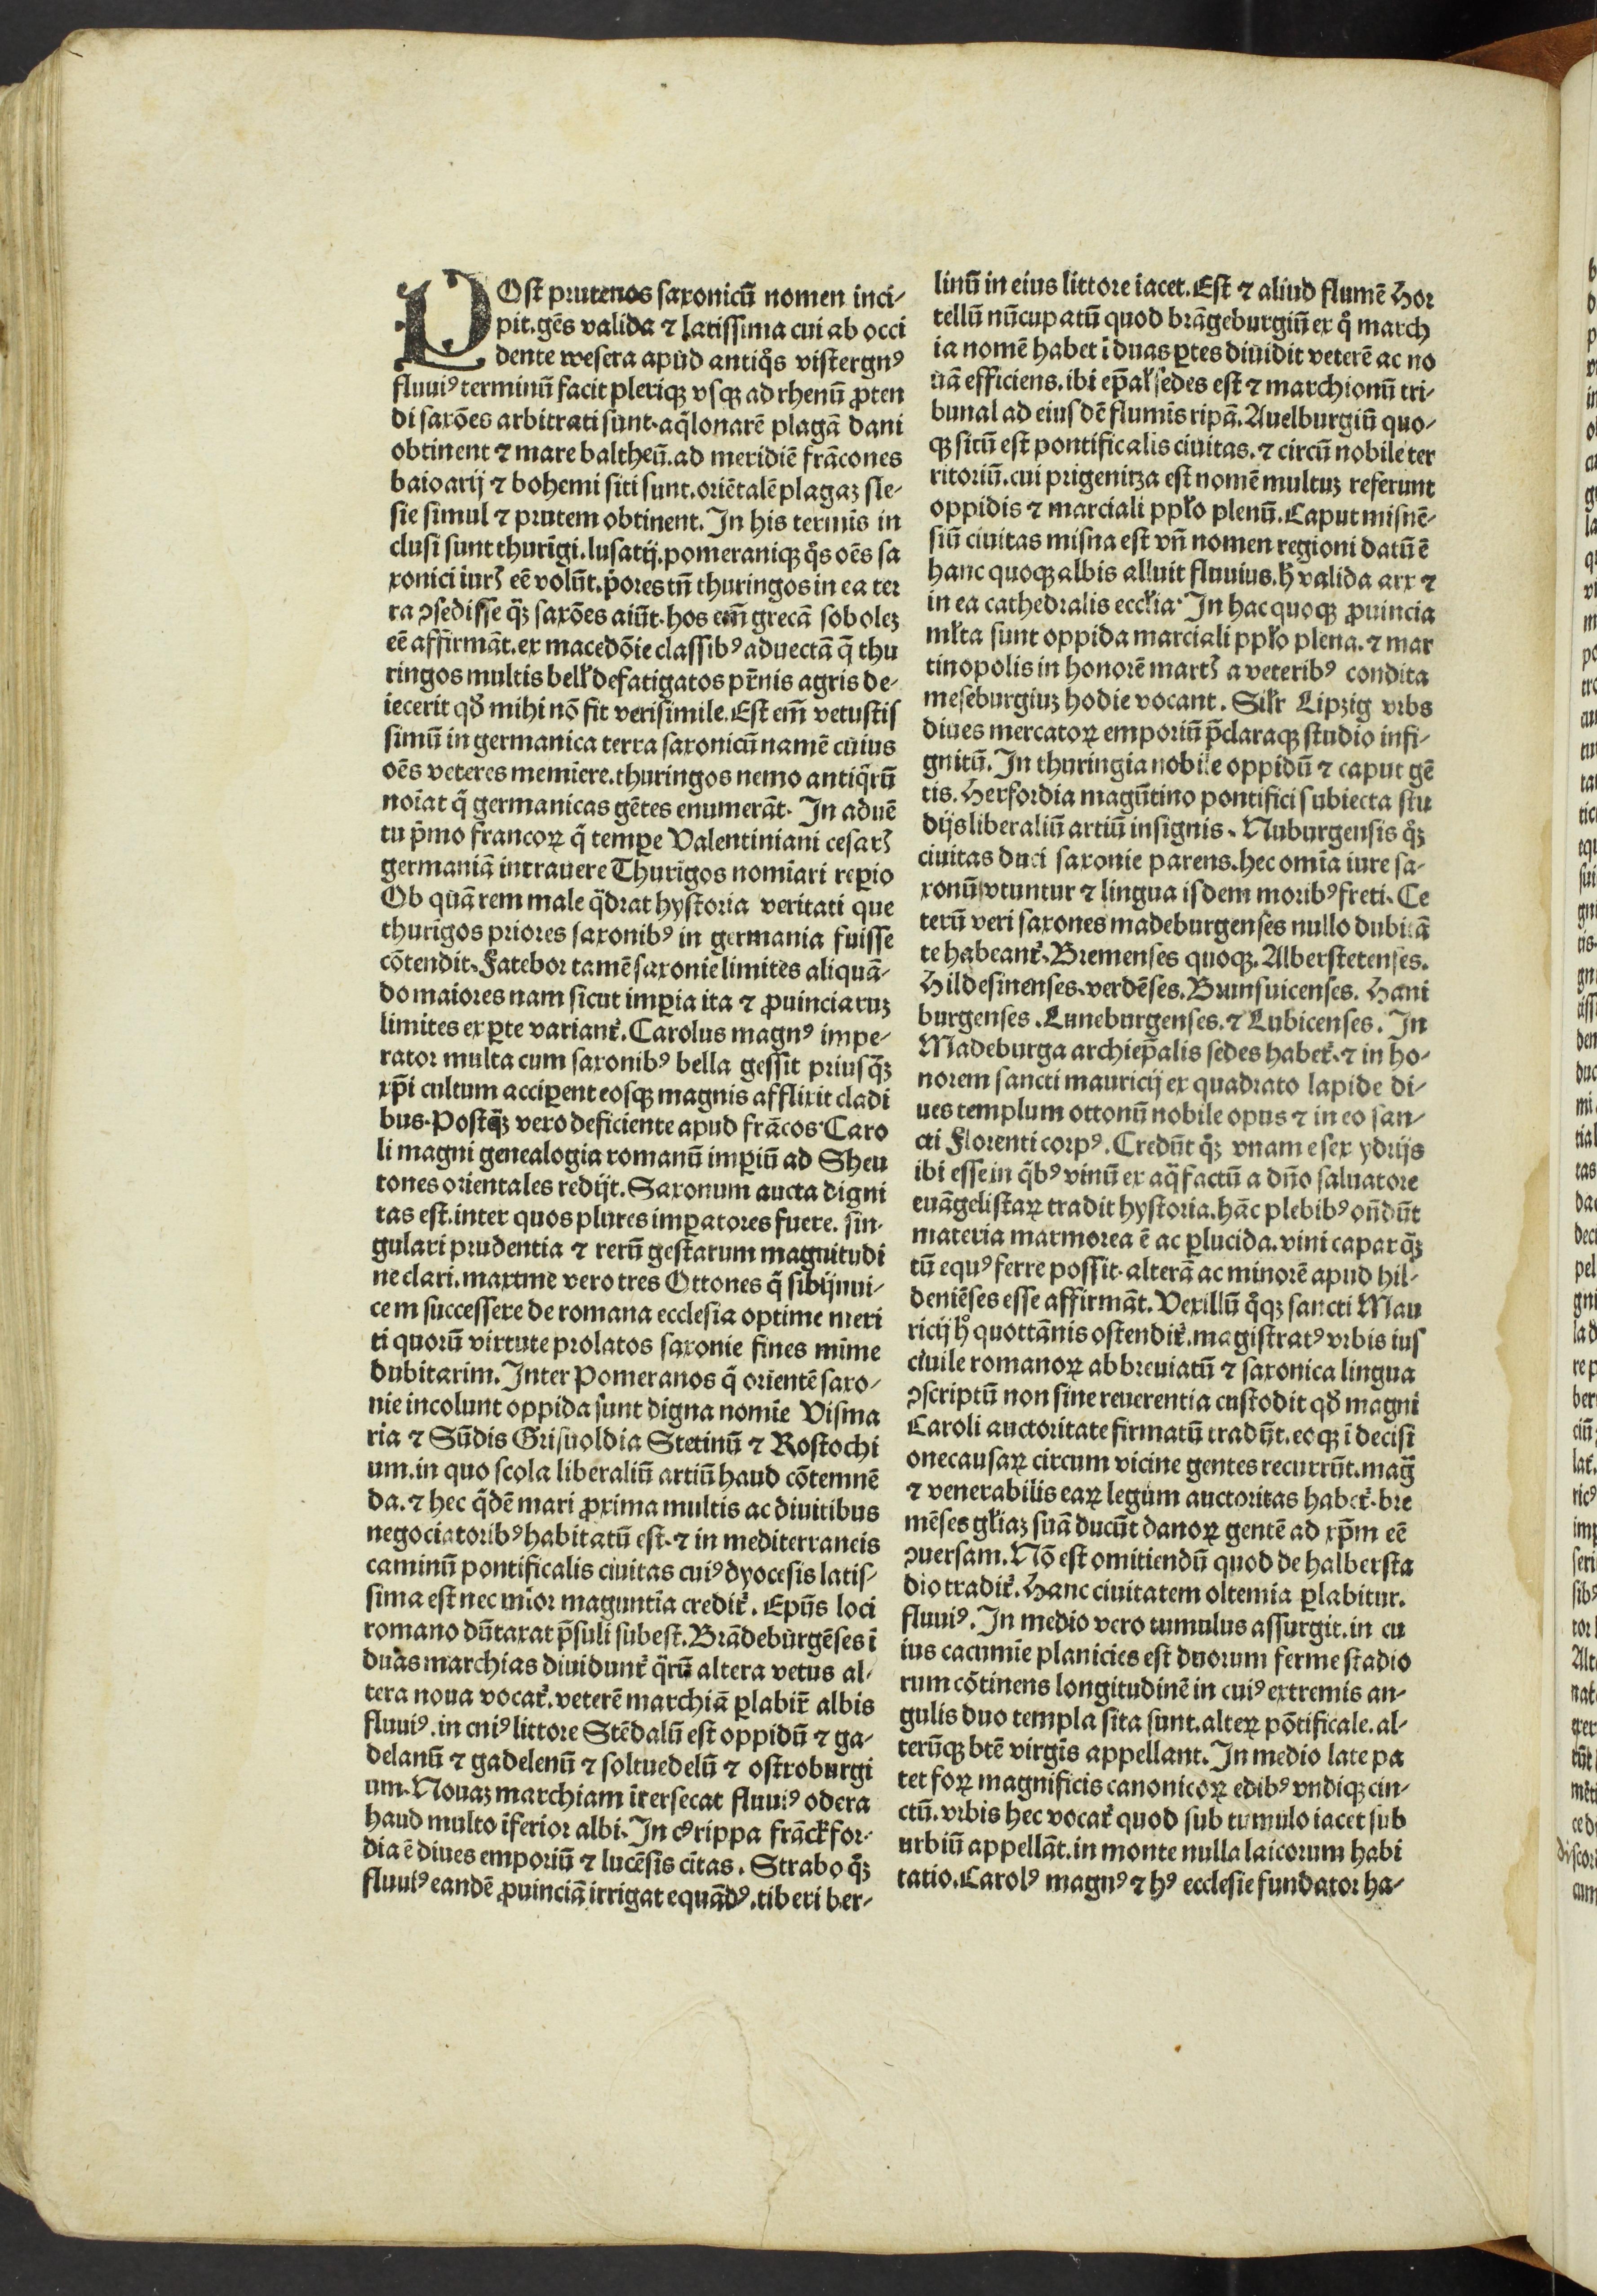 POst prutenos saxonicū nomen inci-
pit. gēs valida ⁊ latissima cui ab occi
dente wesera apud antiq̊s vistergnꝰ
fluuiꝰ terminū facit pleriqꝫ vsqꝫ ad rhenū ꝓten
di saxōes arbitrati sunt. aq̄lonarē plagā dani
obtinent ⁊ mare baltheū. ad meridiē frācones
baioarij ⁊ bohemi siti sunt. oriētalē plagaꝫ sle-
sie simul ⁊ prutem obtinent. In his termis in
clusi sunt thurīgi. lusatij. pomeraniqꝫ q̊s oēs sa
xonici iurꝭ eē volūt. p̄ores tn̄ thuringos in ea ter
ra ꝯsedisse qͣꝫ saxōes aiūt. hos em̄ grecā soboleꝫ
eē affirmāt. ex macedōie classibꝰ aduectā q̄ thu
ringos multis bell̕ defatigatos pr̄nis agris de-
iecerit qd̕ mihi nō fit verisimile. Est em̄ vetustis
simū in germanica terra saxonicū namē cuius
oēs veteres memīere. thuringos nemo antiq̄rū
noīat q̄ germanicas gētes enumerāt. In aduē
tu p̄mo francoꝝ q̄ tempe Valentiniani cesarꝭ
germaniā intrauere Thurīgos nomīari reꝑio
Ob quā rem male q̄drat hystoria veritati que
thurīgos priores saxonibꝰ in germania fuisse
cōtendit. Fatebor tamē saxonie limites aliquā-
do maiores nam sicut imꝑia ita ⁊ ꝓuinciaruꝫ
limites ex ꝑte variant̕. Carolus magnꝰ impe-
rator multa cum saxonibꝰ bella gessit priusqͣꝫ
xp̄i cultum acciꝑent eosqꝫ magnis afflixit cladi
bus. Postqͣꝫ vero deficiente apud frācos Caro
li magni genealogia romanū imꝑiū ad Sheu
tones orientales redijt. Saxonum aucta digni
tas est. inter quos plures imꝑatores fuere. sin-
gulari prudentia ⁊ rerū gestarum magnitudi
ne clari. maxime vero tres Ottones q̄ sibijnui-
cem successere de romana ecclesia optime meri
ti quorū virtute prolatos saxonie fines mīme
dubitarim. Inter Pomeranos q̄ orientē saxo-
nie incolunt oppida sunt digna nomīe Visma
ria ⁊ Sūdis Grisuoldia Stetinū ⁊ Rostochi
um. in quo scola liberaliū artiū haud cōtemnē
da. ⁊ hec q̄dē mari ꝓxima multis ac diuitibus
negociatoribꝰ habitatū est. ⁊ in mediterraneis
caminū pontificalis ciuitas cuiꝰ dyocesis latis-
sima est nec mīor maguntīa credit̕. Epūs loci
romano dūtaxat p̄suli subest. Brādeburgēses ī
duas marchias diuidunt̕ q̄rū altera vetus al-
tera noua vocat̕. veterē marchiā ꝑlabit̕ albis
fluuiꝰ. in cuiꝰ littore Stēdalū est oppidū ⁊ ga-
delanū ⁊ gadelenū ⁊ soltuedelū ⁊ ostroburgi
um. Nouaꝫ marchiam ītersecat fluuiꝰ odera
haud multo īferior albi. In cꝰ rippa frāckfor-
dia ē diues emporiū ⁊ lucēsis cītas. Strabo qͣꝫ
fluuiꝰ eandē ꝓuinciā irrigat equādꝰ. tiberi ber-
linū in eius littore iacet. Est ⁊ aliud flumē Hor
tellū nūcupatū quod brāgeburgiū ex q̊ march
ia nomē habet ī duas ꝑtes diuidit veterē ac no
uā efficiens. ibi ep̄al̕ sedes est ⁊ marchionū tri-
bunal ad eiusdē flumīs ripā. Auelburgiū quo-
qꝫ situ est pontificalis ciuitas. ⁊ circū nobile ter
ritoriū. cui prigenitza est nomē multuꝫ referunt
oppidis ⁊ marciali ppl̕o plenū. Caput misnē-
siū ciuitas misna est vn̄ nomen regioni datū ē
hanc quoqꝫ albis alluit fluuius. hꝫ valida arx ⁊
in ea cathedralis eccl̕ia. In hac quoqꝫ ꝓuincia
ml̕ta sunt oppida marciali ppl̕o plena. ⁊ mar
tinopolis in honorē martꝭ a veteribꝰ condita
meseburgiuꝫ hodie vocant. Sil̕r Lipzig vrbs
diues mercatoꝝ emporiū p̄claraqꝫ studio insi-
gnitū. In thuringia nobile oppidū ⁊ caput gē
tis. Herfordia magūtino pontifici subiecta stu
dijs liberaliū artiū insignis. Nuburgensis q̊ꝫ
ciuitas duci saxonie parens. hec omīa iure sa-
xonū vtuntur ⁊ lingua isdem moribꝰ freti. Ce
terū veri saxones madeburgenses nullo dubitā
te habeant̕. Bremenses quoqꝫ. Alberstetenses.
Hildesinenses. verdēses. Brunsuicenses. Hani
burgenses. Luneburgenses. ⁊ Lubicenses. In
Madeburga archiep̄alis sedes habet̕. ⁊ in ho-
norem sancti mauricij ex quadrato lapide di-
ues templum ottonū nobile opus ⁊ in eo san-
cti Florenti corpꝰ. Credūt q̊ꝫ vnam e sex ydrijs
ibi esse in q̄bꝰ vinū ex aq̄ factū a dn̄o saluatore
euāgelistaꝝ tradit hystoria. hāc plebibꝰ on̄dūt
materia marmorea ē ac ꝑlucida. vini capax qͣꝫ
tū equꝰ ferre possit. alterā ac minorē apud hil-
deniēses esse affirmāt. Vexillū q̊qꝫ sancti Mau
ricij h̊ quottānis ostendit̕. magistratꝰ vrbis ius
ciuile romanoꝝ abbreuiatū ⁊ saxonica lingua
ꝯscriptū non sine reuerentia custodit qd̕ magni
Caroli auctoritate firmatū tradūt. eoqꝫ ī decisi
onecausaꝝ circum vicine gentes recurrūt. maḡ
⁊ venerabilis eaꝝ legum auctoritas habet̕. bre
mēses gl̕iaꝫ suā ducūt danoꝝ gentē ad xp̄m eē
ꝯuersam. Nō est omitiendū quod de halbersta
dio tradit̕. Hanc ciuitatem oltemia ꝑlabitur.
fluuiꝰ. In medio vero tumulus assurgit. in cu
ius cacumīe planicies est duorum ferme stadio
rum cōtinens longitudinē in cuiꝰ extremis an-
gulis duo templa sita sunt. alteꝝ pōtificale. al-
terūqꝫ btē virgīs appellant. In medio late pa
tet foꝝ magnificis canonicoꝝ edibꝰ vndiqꝫ cin-
ctū. vrbis hec vocat̕ quod sub tumulo iacet sub
urbiū appellāt. in monte nulla laicorum habi
tatio. Carolꝰ magnꝰ ⁊ hꝰ ecclesie fundator ha-